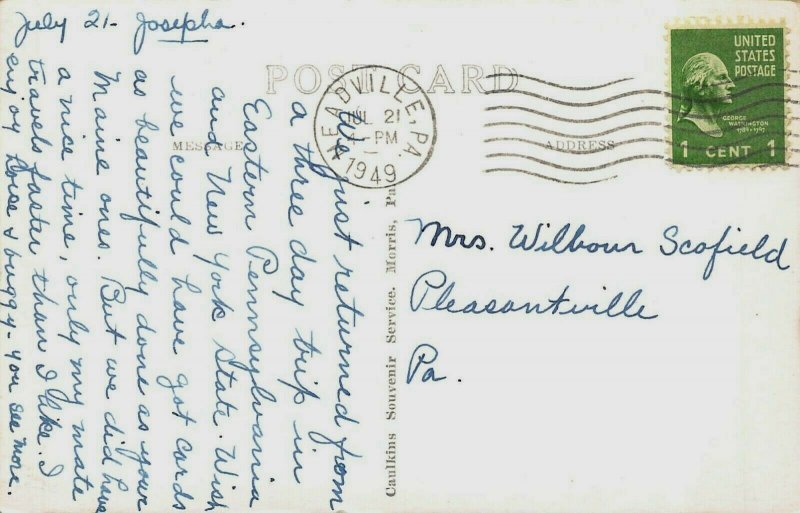 July 21- Josepha.
POST CARD
MESSAGE
ADDRESS
MEADVILLE, PA.
JUL 21
PM
1949
UNITED
STATES
POSTAGE
GEORGE
WASHINGTON
1789-1797
1 CENT 1
We just returned from
a three day trip in
Eastern Pennsylvania
and New York State. Wish
we could have got cards
as beautifully done as your
Maine ones. But we did have
a nice time, only my mate
travels faster than I like. I
enjoy horse & buggy - you see more.
Mrs. Wilbour Scofield
Pleasantville
Pa.
Caulkins Souvenir Service. Morris, Pa